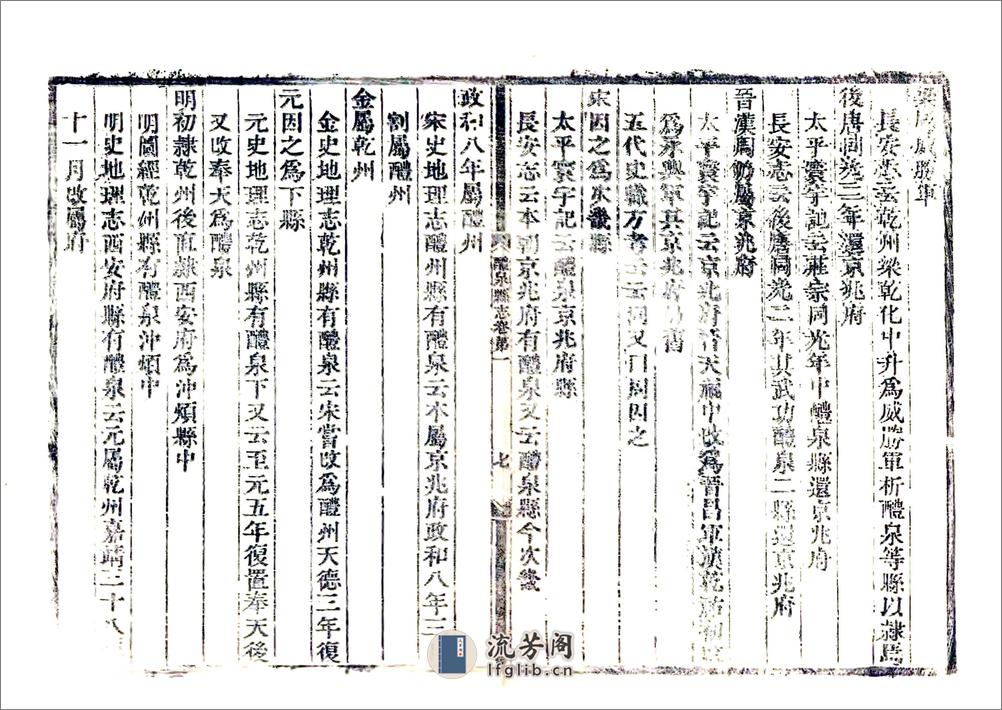 梁屬威勝軍
長安志云乾州梁乾化中升爲威勝軍析醴泉等縣以隸焉
後唐同光三年還京兆府
太平寰宇記云莊宗同光年中醴泉縣還京兆府
長安志云後唐同光二年其武功醴泉二縣還京兆府
晉漢周仍屬京兆府
太平寰宇記云京兆府晉天福中改爲晉昌軍漢乾祐初
爲永興軍其京兆府仍舊
五代史職方考云云同又曰周因之
宋因之爲次畿縣
太平寰宇記云醴泉京兆府縣
長安志云本朝京兆府有醴泉又云醴泉縣今次畿
醴泉縣志卷第一
七
政和八年屬醴州
宋史地理志醴州縣有醴泉云本屬京兆府政和八年三
割屬醴州
金屬乾州
金史地理志乾州縣有醴泉云宋嘗改爲醴州天德三年復
元因之爲下縣
元史地理志乾州縣有醴泉下又云至元五年復置奉天後
又改奉天爲醴泉
明初隸乾州後直隸西安府爲沖煩縣中
明圖經乾州縣有醴泉沖煩中
明史地理志西安府縣有醴泉云元屬乾州嘉靖三十八
十一月改屬府
流芳阁
lfglib.cn